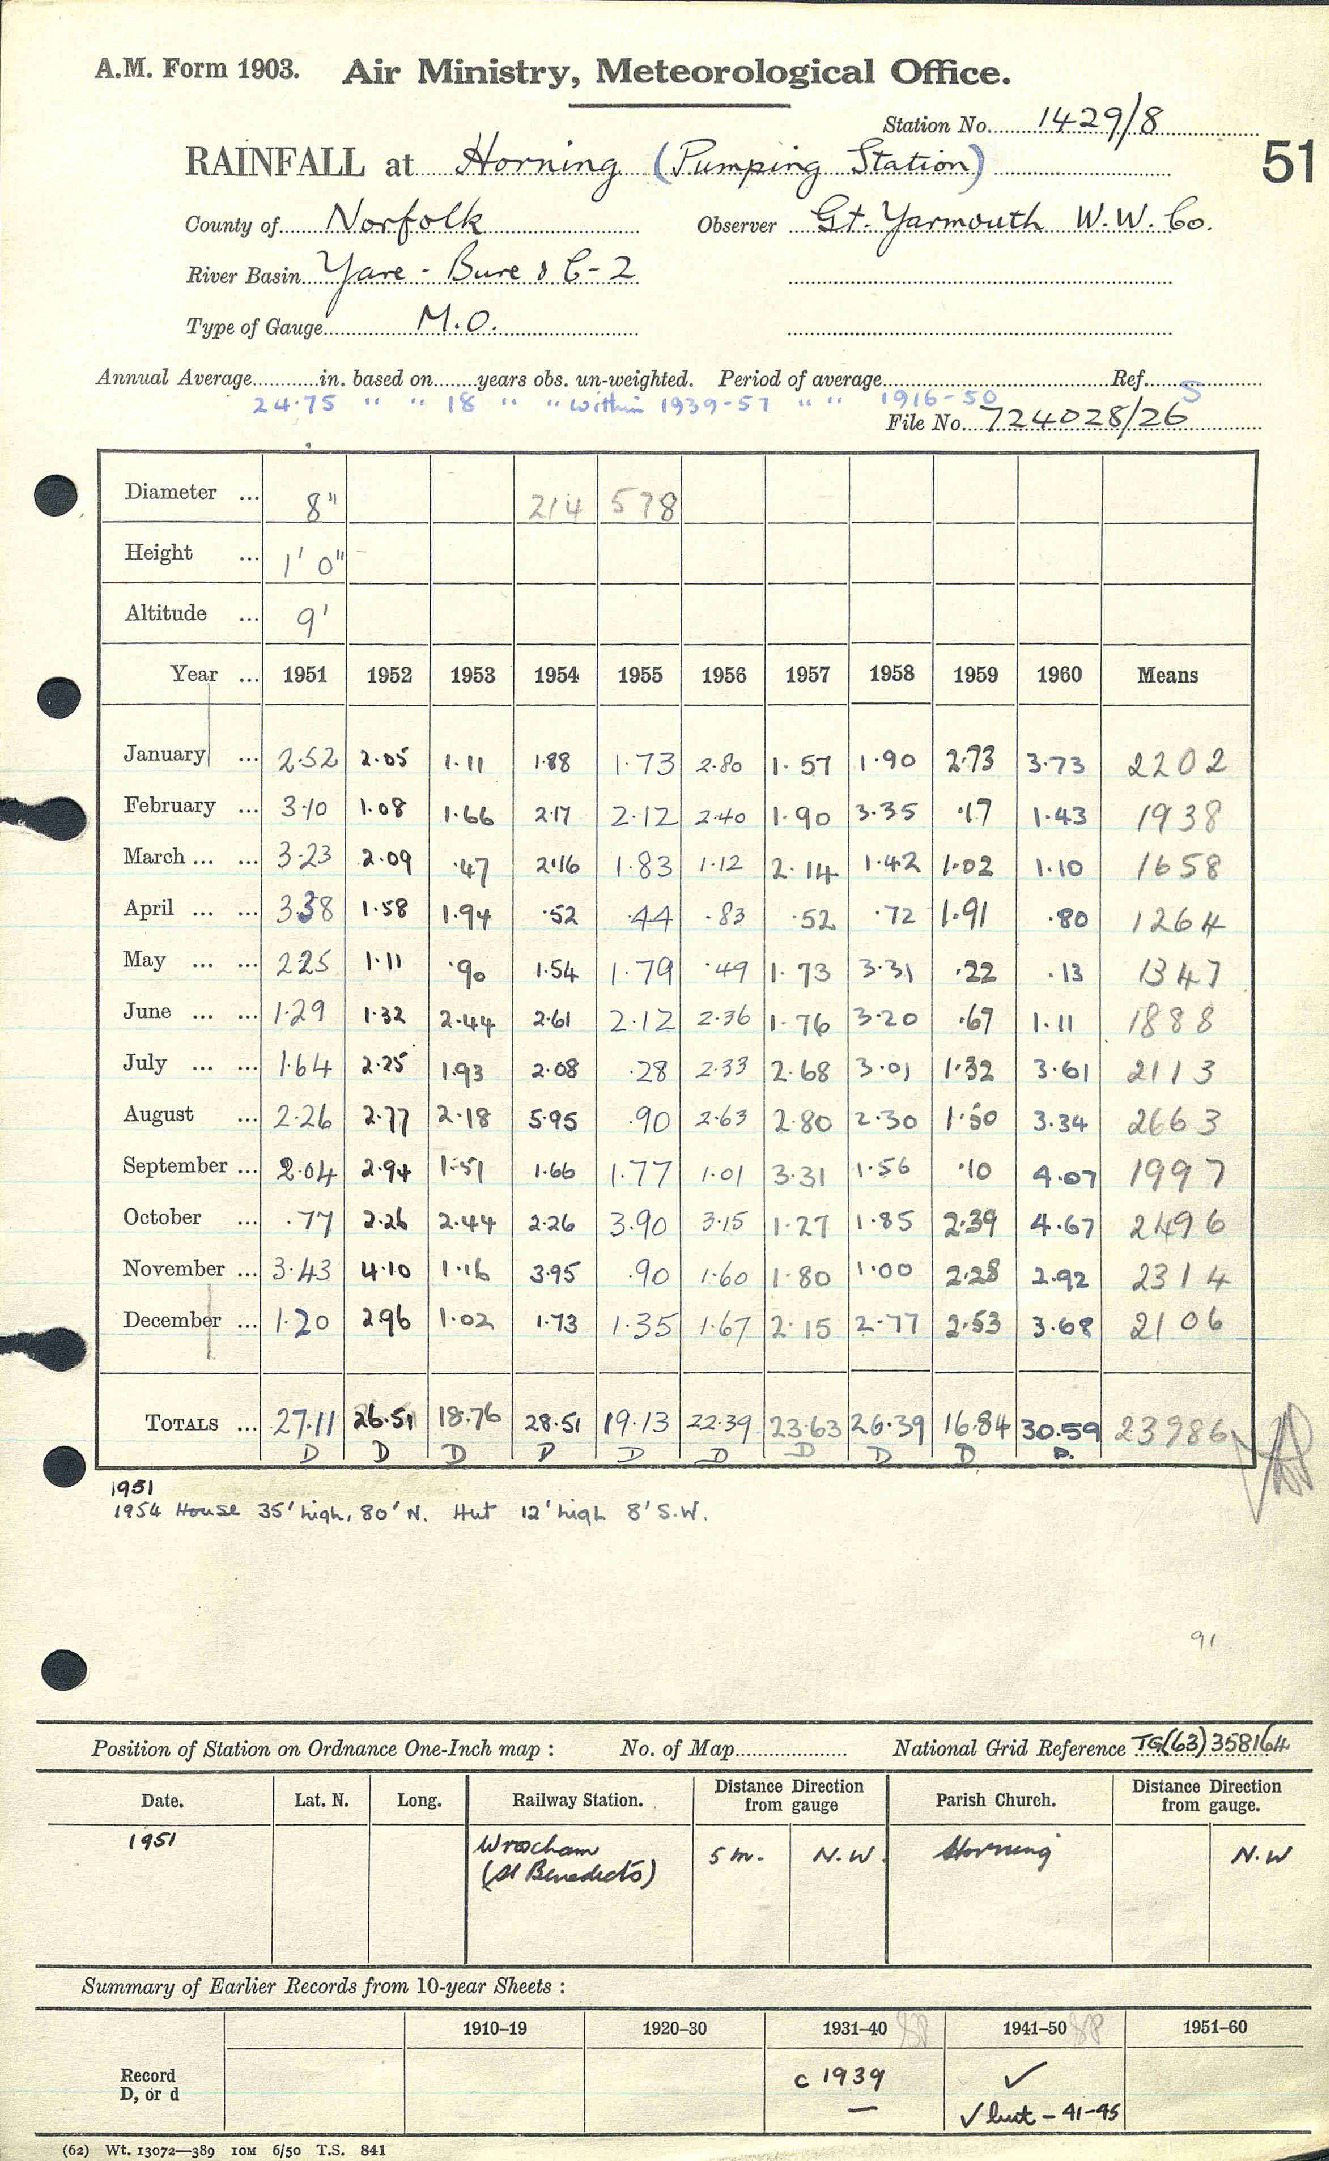 A.M. Form 1903. Air Ministry, Meteorological Office.
Station No. 1429/8
51
RAINFALL at Horning (Pumping Station)
County of Norfolk Observer Gt. Yarmouth W.W. Co.
River Basin Yare - Bure & C-2
Type of Gauge M.O.
Annual Average in. based on years obs. un-weighted. Period of average Ref. S
24.75 " " 18 " " within 1939-57 " " 1916-50
File No. 724028/26
Diameter ... 8" 214 578
Height ... 1' 0"
Altitude ... 9'
Year ... 1951 1952 1953 1954 1955 1956 1957 1958 1959 1960 Means
January ... 2.52 2.05 1.11 1.88 1.73 2.80 1.57 1.90 2.73 3.73 2202
February ... 3.10 1.08 1.66 2.17 2.12 2.40 1.90 3.35 .17 1.43 1938
March ... ... 3.23 2.09 .47 2.16 1.83 1.12 2.14 1.42 1.02 1.10 1658
April ... ... 3.38 1.58 1.94 .52 .44 .83 .52 .72 1.91 .80 1264
May ... ... 2.25 1.11 .90 1.54 1.79 .49 1.73 3.31 .22 .13 1347
June ... ... 1.29 1.32 2.44 2.61 2.12 2.36 1.76 3.20 .67 1.11 1888
July ... ... 1.64 2.25 1.93 2.08 .28 2.33 2.68 3.01 1.32 3.61 2113
August ... 2.26 2.77 2.18 5.95 .90 2.63 2.80 2.30 1.50 3.34 2663
September ... 2.04 2.94 1.51 1.66 1.77 1.01 3.31 1.56 .10 4.07 1997
October ... .77 2.26 2.44 2.26 3.90 3.15 1.27 1.85 2.39 4.67 2496
November ... 3.43 4.10 1.16 3.95 .90 1.60 1.80 1.00 2.28 2.92 2314
December ... 1.20 2.96 1.02 1.73 1.35 1.67 2.15 2.77 2.53 3.68 2106
TOTALS ... 27.11 26.51 18.76 28.51 19.13 22.39 23.63 26.39 16.84 30.59 23986
D D D D D D D D D D.
1951
1954 House 35' high, 80' N. Hut 12' high 8' S.W.
91
Position of Station on Ordnance One-Inch map : No. of Map National Grid Reference TG(63)358164
Date. Lat. N. Long. Railway Station. Distance Direction from gauge Parish Church. Distance Direction from gauge.
1951 Wroxham 5 m. N.W. Horning N.W
(St Benedicts)
Summary of Earlier Records from 10-year Sheets :
1910-19 1920-30 1931-40 1941-50 1951-60
Record D, or d c 1939 ✓
— ✓ but - 41-45
(62) Wt. 13072—389 10M 6/50 T.S. 841